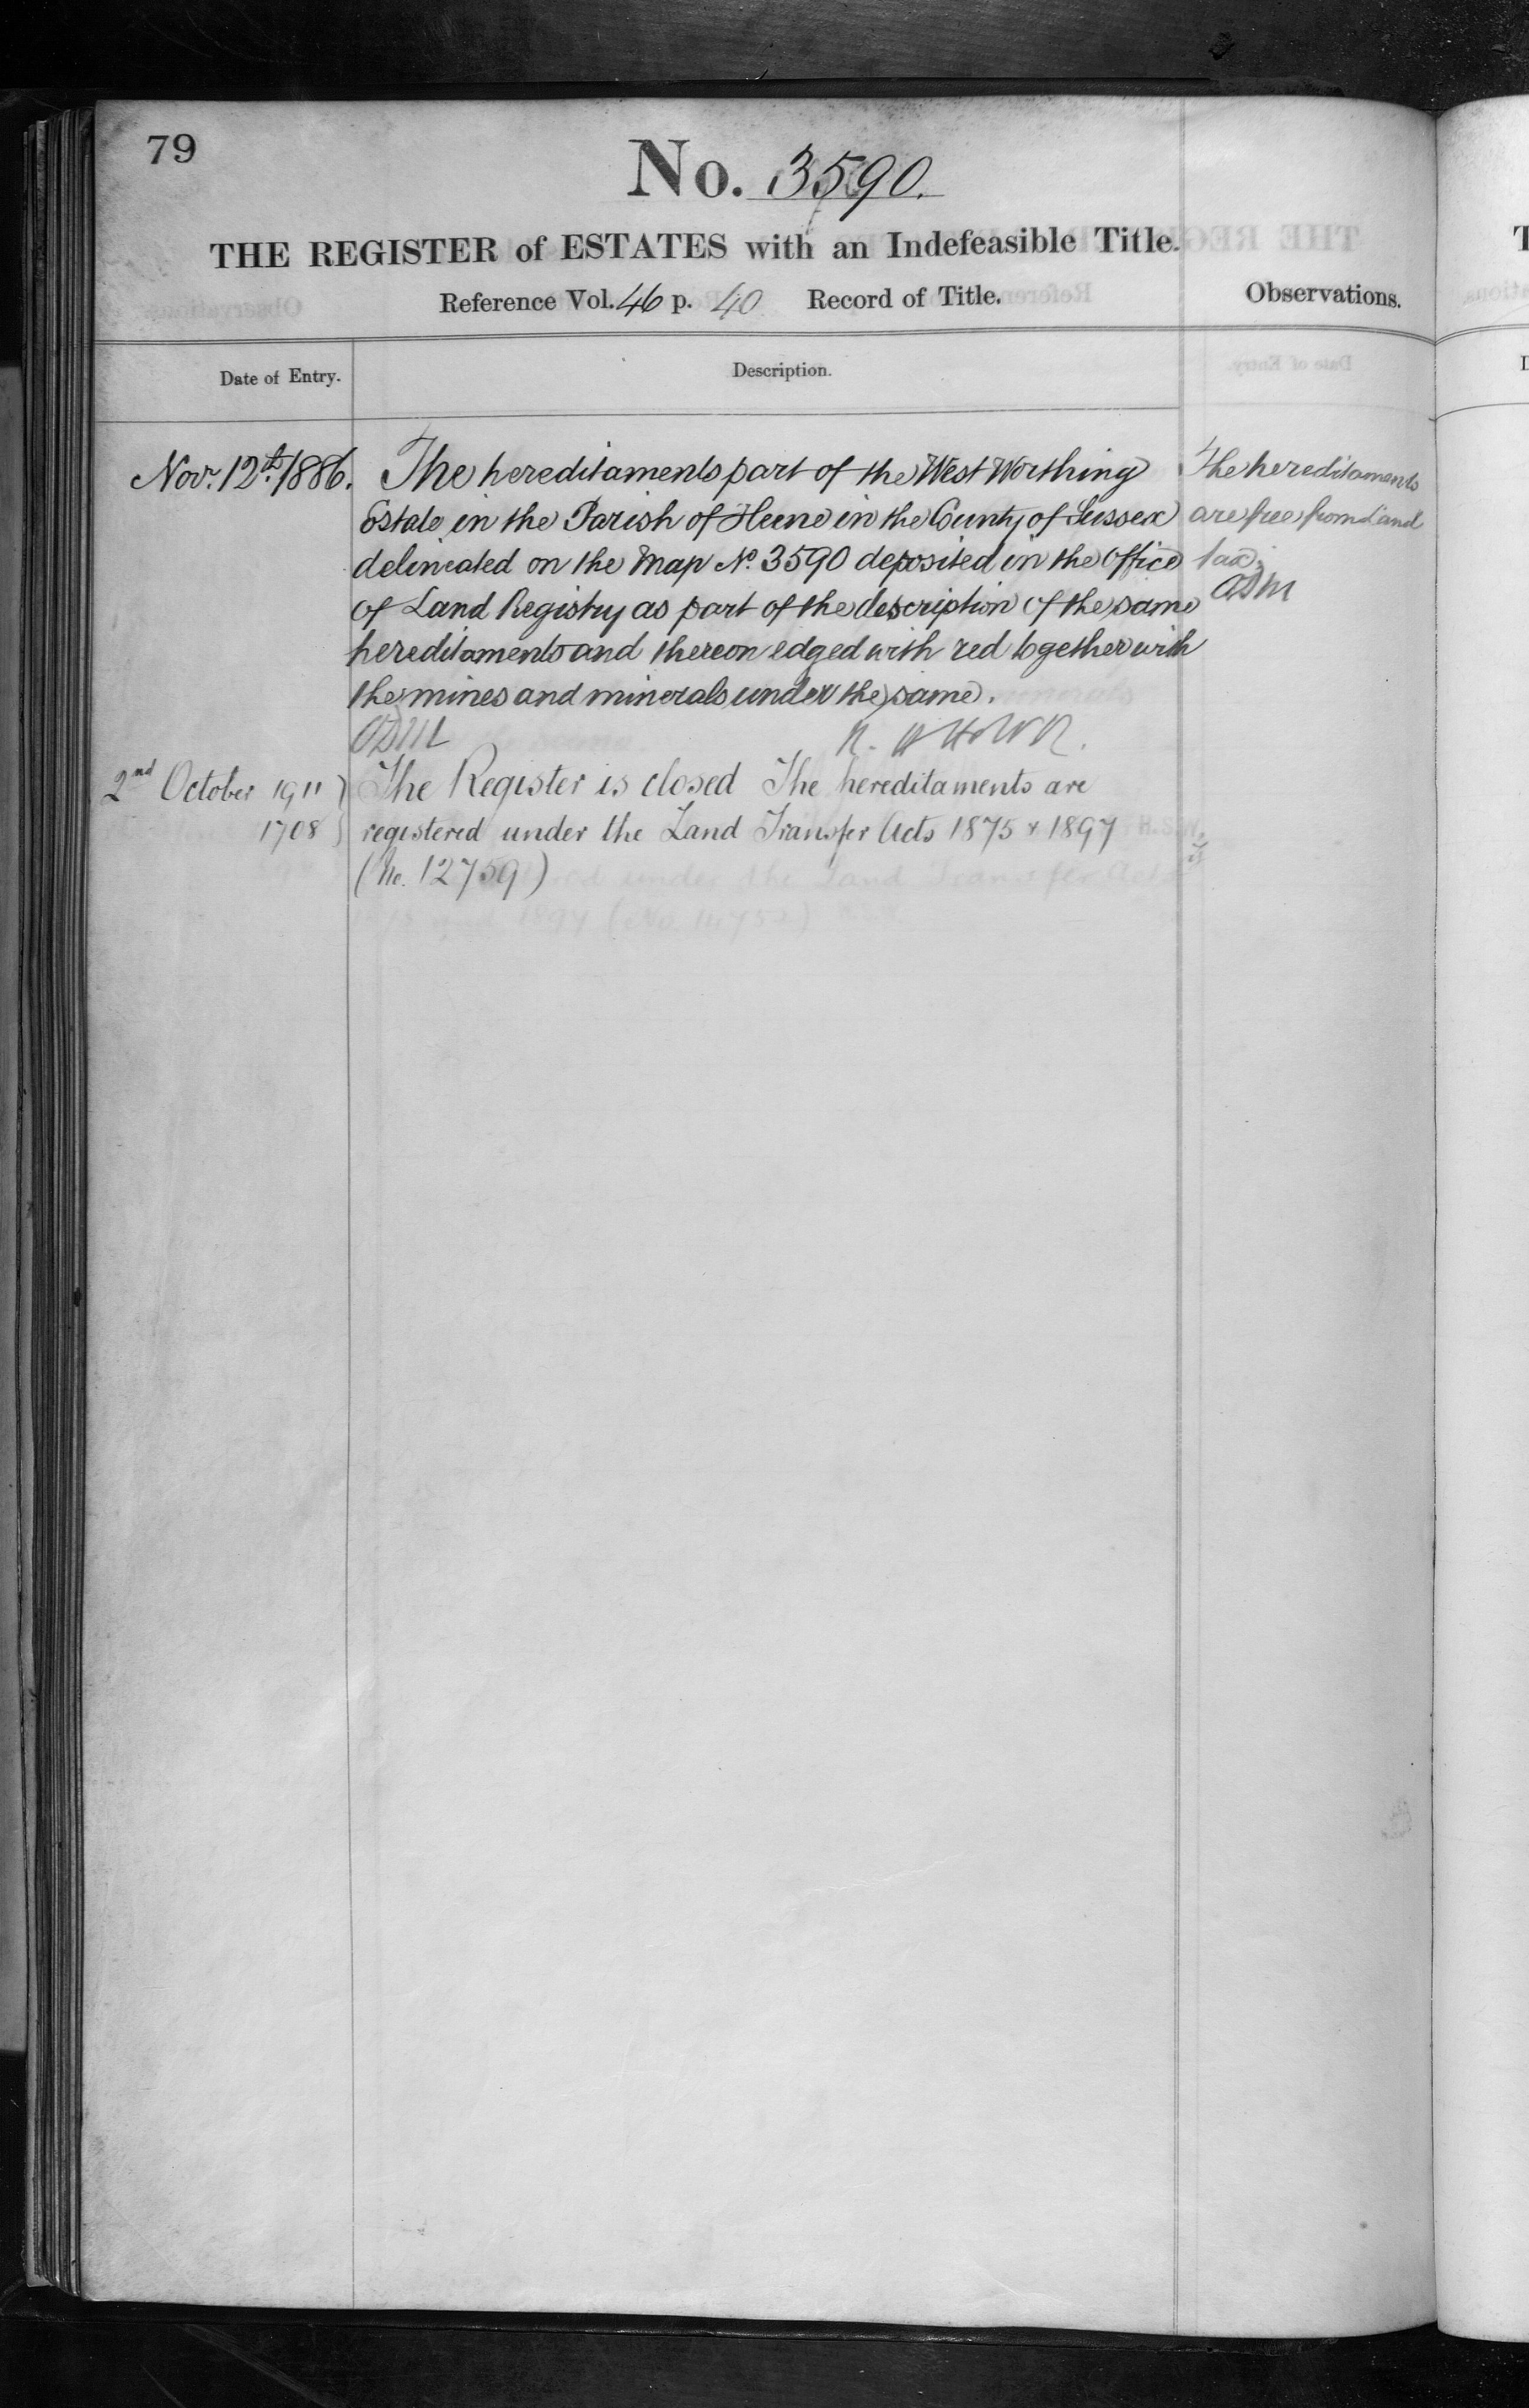 79
No. 3590.
THE REGISTER of ESTATES with an Indefeasible Title.
Reference Vol. 46 p. 40 Record of Title.
Observations.
Date of Entry.
Description.
Nov.r 12th. 1886.
The hereditaments part of the West Worthing
Estate in the Parish of Heene in the County of Sussex
delineated on the Map No. 3590 deposited in the Office
of Land Registry as part of the description of the same
hereditaments and thereon edged with red together with
the mines and minerals under the same.
The hereditaments
are free from Land
tax.
2nd October 1911
1708
The Register is closed The hereditaments are
registered under the Land Transfer Acts 1875 & 1897
(No. 12759)